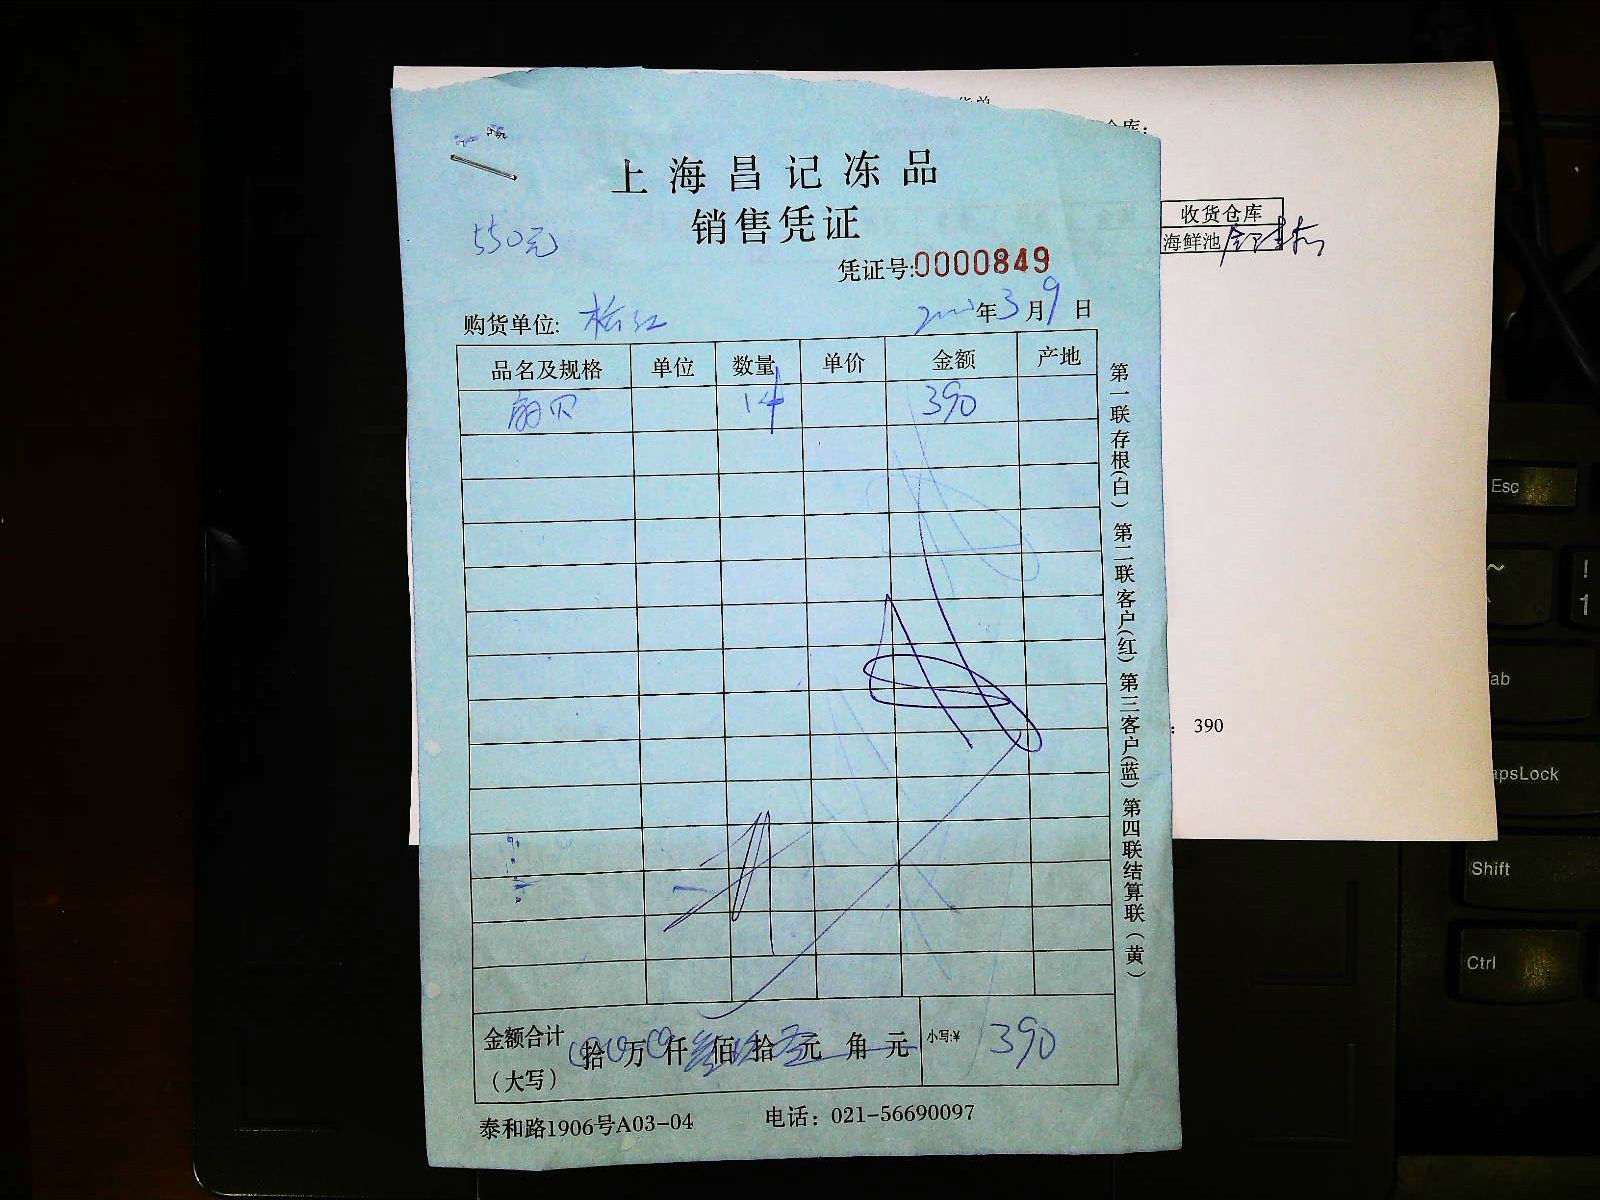 上海昌记冻品
销售凭证
550元
凭证号:0000849
购货单位: 年3月9日
品名及规格 单位 数量 单价 金额 产地
扇贝 14 390
第一联存根(白) 第二联客户(红) 第三客户(蓝) 第四联结算联(黄)
金额合计(大写) 拾 万 仟 佰 拾 元 角 元 小写:¥ 390
泰和路1906号A03-04 电话: 021-56690097
收货仓库
海鲜池
: 390
Esc
~
!
1
Tab
CapsLock
Shift
Ctrl